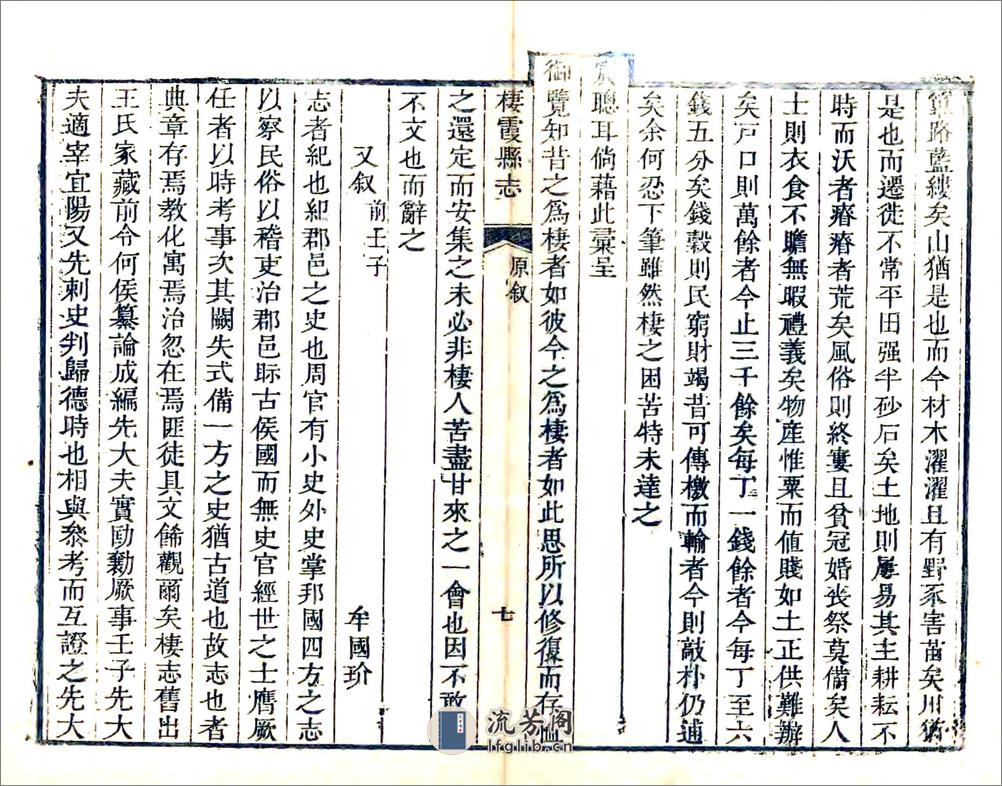 篳路藍縷矣山猶是也而今材木濯濯且有野豕害苗矣川猶
是也而遷徙不常平田强半砂石矣土地則屢易其主耕耘不
時而沃者瘠瘠者荒矣風俗則終窶且貧冠婚喪祭莫備矣人
士則衣食不贍無暇禮義矣物産惟粟而値賤如土正供難辦
矣戸口則萬餘者今止三千餘矣每丁一錢餘者今每丁至六
錢五分矣錢穀則民窮財竭昔可傳檄而輸者今則敲朴仍逋
矣余何忍下筆雖然棲之困苦特未達之
宸聰耳倘藉此彚呈
御覽知昔之爲棲者如彼今之爲棲者如此思所以修復而存恤
棲霞縣志 原叙 七
之還定而安集之未必非棲人苦盡甘來之一會也因不敢
不文也而辭之
又叙 前壬子 牟國玠
志者紀也紀郡邑之史也周官有小史外史掌邦國四方之志
以察民俗以稽吏治郡邑眎古侯國而無史官經世之士膺厥
任者以時考事次其闕失式備一方之史猶古道也故志也者
典章存焉教化寓焉治忽在焉匪徒具文餙觀爾矣棲志舊出
王氏家藏前令何侯纂論成編先大夫實勖勷厥事壬子先大
夫適宰宜陽又先刺史判歸德時也相與叅考而互證之先大
流芳阁
lfglib.cn